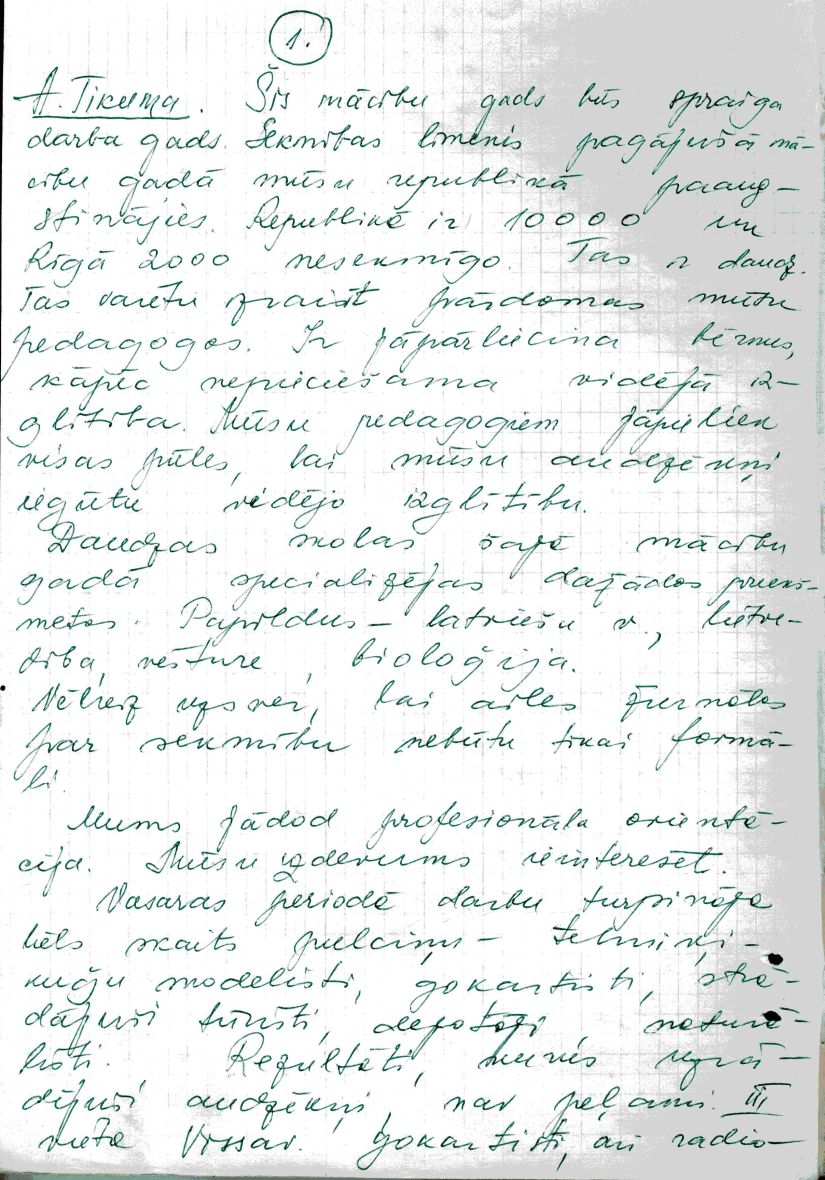 1.
A. Tikuma. Šis mācību gads būs spraiga
darba gads. Sekmības līmenis pagājušā mā-
cību gadā mūsu republikā paaug-
stinājies. Republikā ir 10000 un
Rīgā 2000 nesekmīgo. Tas ir daudz.
Tas varētu izraisīt pārdomas mūsu
pedagogos. Ir jāpārliecina bērnus,
kāpēc nepieciešama vidējā iz-
glītība. Mūsu pedagogiem jāpieliek
visas pūles, lai mūsu audzēkņi
iegūtu vidējo izglītību.
Daudzas skolas šajā mācību
gadā specializējas dažādos priekš-
metos. Papildus – latviešu v., lietve-
dība, vēsture, bioloģija.
Vēlreiz uzsver, lai ailes žurnālos
par sekmību nebūtu tikai formā-
li.
Mums jādod profesionāla orientā-
cija. Mūsu uzdevums ieinteresēt.
Vasaras periodā darbu turpināja
liels skaits pulciņu – tehniķi –
kuģu modelisti, gokartisti, strā-
dājuši tūristi, dejotāji, naturā-
listi. Rezultāti, kurus uzrā-
dījuši audzēkņi, nav peļami. III
vieta Vissav. gokartisti, arī radio-